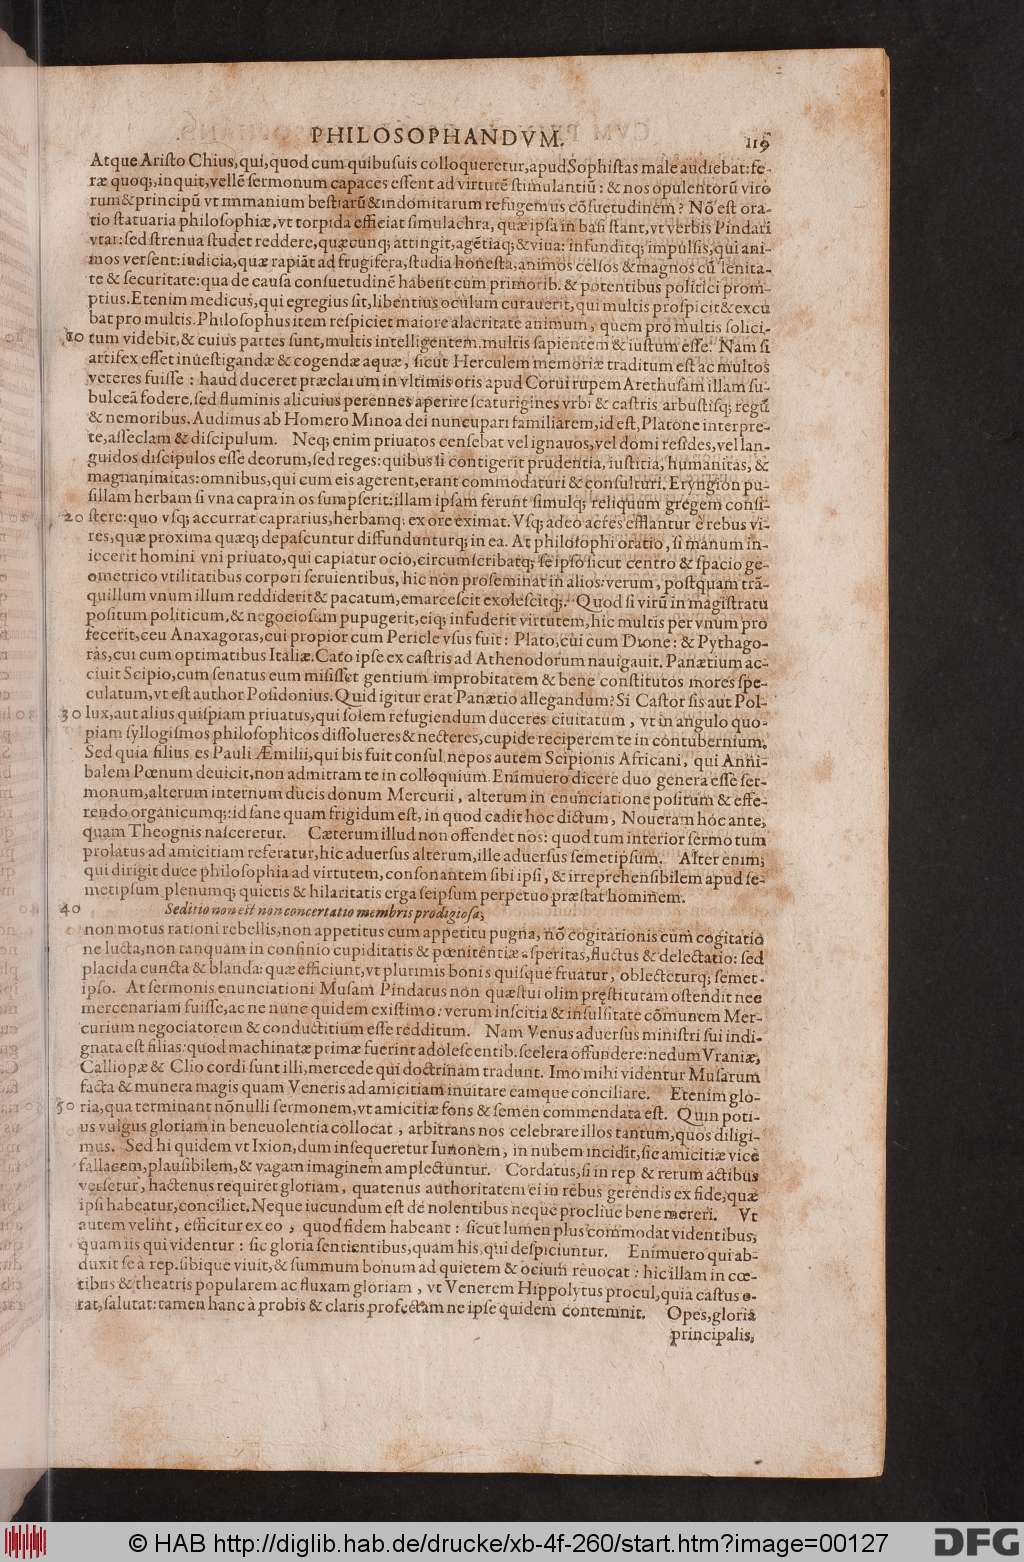 PHILOSOPHANDVM. 119
Atque Aristo Chius, qui, quod cum quibusuis colloqueretur, apud Sophistas malè audiebat: fe-
ræ quoq;, inquit, vellẽ sermonum capaces essent ad virtutẽ stimulantiũ: & nos opulentorũ viro
rum & principũ vt immanium bestiarũ & indomitarum refugemus cõsuetudinem? Nõ est ora-
tio statuaria philosophiæ, vt torpida efficiat simulachra, quæ ipsa in basi stant, vt verbis Pindari
vtar: sed strenua studet reddere, quæcunq; attingit, agẽtiaq; & viua: infunditq; impulsis, qui ani-
mos versent: iudicia, quæ rapiãt ad frugifera, studia honesta, animos celsos & magnos cũ lenita-
te & securitate: qua de causa consuetudinẽ habent cum primorib. & potentibus politici prom-
ptius. Etenim medicus, qui egregius sit, libentius oculum curauerit, qui multis prospicit & excu
bat pro multis. Philosophus item respiciet maiore alacritate animum, quem pro multis solici-
10 tum videbit, & cuius partes sunt, multis intelligentem, multis sapientem & iustum esse. Nam si
artifex esset inuestigandæ & cogendæ aquæ, sicut Herculem memoriæ traditum est ac multos
veteres fuisse: haud duceret præclarum in vltimis oris apud Corui rupem Arethusam illam su-
bulceã fodere, sed fluminis alicuius perennes aperire scaturigines vrbi & castris arbustisq; regũ
& nemoribus. Audimus ab Homero Minoa dei nuncupari familiarem, id est, Platone interpre-
te, asseclam & discipulum. Neq; enim priuatos censebat vel ignauos, vel domi resides, vel lan-
guidos discipulos esse deorum, sed reges: quibus si contigerit prudentia, iusticia, humanitas, &
magnanimitas: omnibus, qui cum eis agerent, erant commodaturi & consulturi. Eryngion pu-
sillam herbam si vna capra in os sumpserit: illam ipsam ferunt simulq; reliquum gregem consi-
20 stere: quo vsq; accurrat caprarius, herbamq: ex ore eximat. Vsq; adeo acres efflantur è rebus vi-
res, quæ proxima quæq; depascuntur diffundunturq; in ea. At philosophi oratio, si manum in-
iecerit homini vni priuato, qui capiatur ocio, circumscribatq; se ipso sicut centro & spacio ge-
ometrico vtilitatibus corpori seruientibus, hic non proseminat in alios: verum, postquam trã-
quillum vnum illum reddiderit & pacatum, emarcescit exolescitq;. Quod si virũ in magistratu
positum politicum, & negociosum pupugerit, eiq; infuderit virtutem, hic multis per vnum pro
fecerit, ceu Anaxagoras, cui propior cum Pericle vsus fuit: Plato, cui cum Dione: & Pythago-
ras, cui cum optimatibus Italiæ. Cato ipse ex castris ad Athenodorum nauigauit. Panætium ac-
ciuit Scipio, cum senatus eum misisset gentium improbitatem & bene constitutos mores spe-
culatum, vt est author Posidonius. Quid igitur erat Panætio allegandum? Si Castor sis aut Pol-
30 lux, aut alius quispiam priuatus, qui solem refugiendum duceres ciuitatum, vt in angulo quo-
piam syllogismos philosophicos dissolueres & necteres, cupide reciperem te in contubernium.
Sed quia filius es Pauli Æmilii, qui bis fuit consul nepos autem Scipionis Africani, qui Anni-
balem Pœnum deuicit, non admitram te in colloquium. Enimuero dicere duo genera esse ser-
monum, alterum internum ducis donum Mercurii, alterum in enunciatione positum & effe-
rendo organicumq;: id sane quam frigidum est, in quod cadit hoc dictum, Noueram hoc ante,
quam Theognis nasceretur. Cæterum illud non offendet nos: quod tum interior sermo tum
prolatus ad amicitiam referatur, hic aduersus alterum, ille aduersus semetipsum. Alter enim,
qui dirigit duce philosophia ad virtutem, consonantem sibi ipsi, & irreprehensibilem apud se-
metipsum plenumq; quietis & hilaritatis erga seipsum perpetuo præstat hominem.
40 Seditio non est non concertatio membris prodigiosa,
non motus rationi rebellis, non appetitus cum appetitu pugna, nõ cogitationis cum cogitatio
ne lucta, non tanquam in confinio cupiditatis & pœnitentiæ asperitas, fluctus & delectatio: sed
placida cuncta & blanda: quæ efficiunt, vt plurimis bonis quisque fruatur, oblecteturq; semet-
ipso. At sermonis enunciationi Musam Pindarus non quæstui olim pręstitutam ostendit nec
mercenariam fuisse, ac ne nunc quidem existimo: verum inscitia & insulsitate cõmunem Mer-
curium negociatorem & conductitium esse redditum. Nam Venus aduersus ministri sui indi-
gnata est filias: quod machinatæ primæ fuerint adolescentib. scelera offundere: nedum Vraniæ,
Calliopæ & Clio cordi sunt illi, mercede qui doctrinam tradunt. Imo mihi videntur Musarum
facta & munera magis quam Veneris ad amicitiam inuitare eamque conciliare. Etenim glo-
50 ria, qua terminant nõnulli sermonem, vt amicitiæ fons & semen commendata est. Quin poti-
us vulgus gloriam in beneuolentia collocat, arbitrans nos celebrare illos tantum, quos diligi-
mus. Sed hi quidem vt Ixion, dum insequeretur Iunonem, in nubem incidit, sic amicitiæ vice
fallacem, plausibilem, & vagam imaginem amplectuntur. Cordatus, si in rep. & rerum actibus
versetur, hactenus requiret gloriam, quatenus authoritatem ei in rebus gerendis ex fide, quæ
ipsi habeatur, conciliet. Neque iucundum est de nolentibus neque procliue bene mereri. Vt
autem velint, efficitur ex eo, quod fidem habeant: sicut lumen plus commodat videntibus,
quam iis qui videntur: sic gloria sentientibus, quam his, qui despiciuntur. Enimuero qui ab-
duxit se à rep. sibique viuit, & summum bonum ad quietem & ocium reuocat: hic illam in cœ-
tibus & theatris popularem ac fluxam gloriam, vt Venerem Hippolytus procul, quia castus e-
rat, salutat: tamen hanc à probis & claris profectam ne ipse quidem contemnit. Opes, gloria
principalis,
© HAB http://diglib.hab.de/drucke/xb-4f-260/start.htm?image=00127
DFG